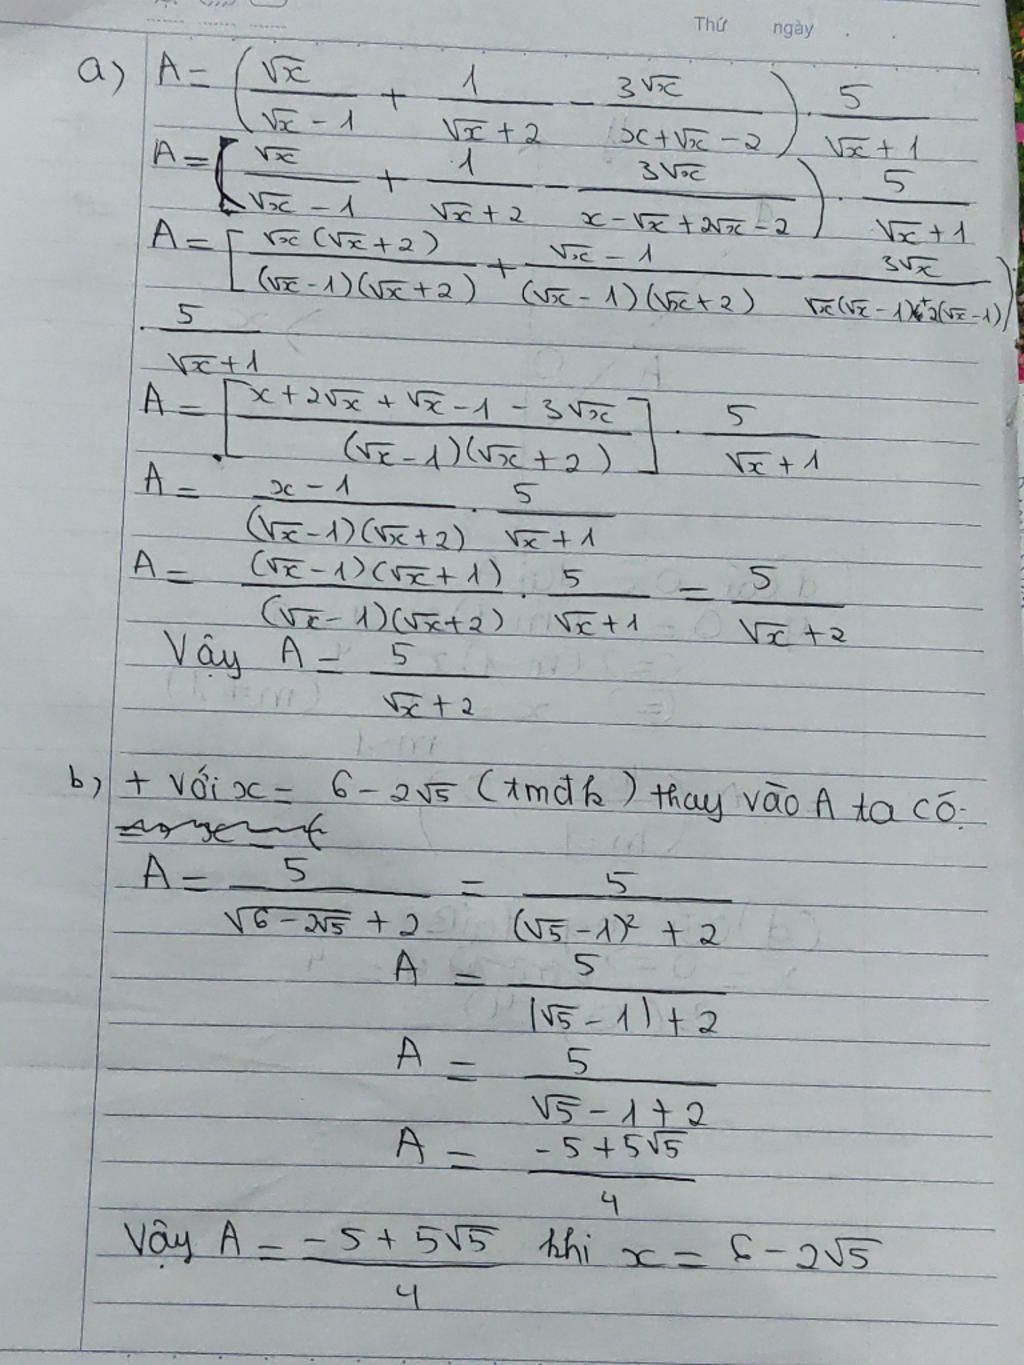 Thứ ngày
a) A = (√x/(√x - 1) + 1/(√x + 2) - 3√x/(x + √x - 2)) . 5/(√x + 1)
A = [√x/(√x - 1) + 1/(√x + 2) - 3√x/(x - √x + 2√x - 2)) . 5/(√x + 1)
A = [√x(√x + 2)/((√x - 1)(√x + 2)) + (√x - 1)/((√x - 1)(√x + 2)) - 3√x/(√x(√x - 1) + 2(√x - 1)))
. 5/(√x + 1)
A = [(x + 2√x + √x - 1 - 3√x)/((√x - 1)(√x + 2))] . 5/(√x + 1)
A = (x - 1)/((√x - 1)(√x + 2)) . 5/(√x + 1)
A = (√x - 1)(√x + 1)/((√x - 1)(√x + 2)) . 5/(√x + 1) = 5/(√x + 2)
Vậy A = 5/(√x + 2)
b) + Với x = 6 - 2√5 (tmđk) thay vào A ta có:
A = 5/(√(6 - 2√5) + 2) = 5/((√5 - 1)² + 2)
A = 5/(|√5 - 1| + 2)
A = 5/(√5 - 1 + 2)
A = (-5 + 5√5)/4
Vậy A = (-5 + 5√5)/4 khi x = 6 - 2√5